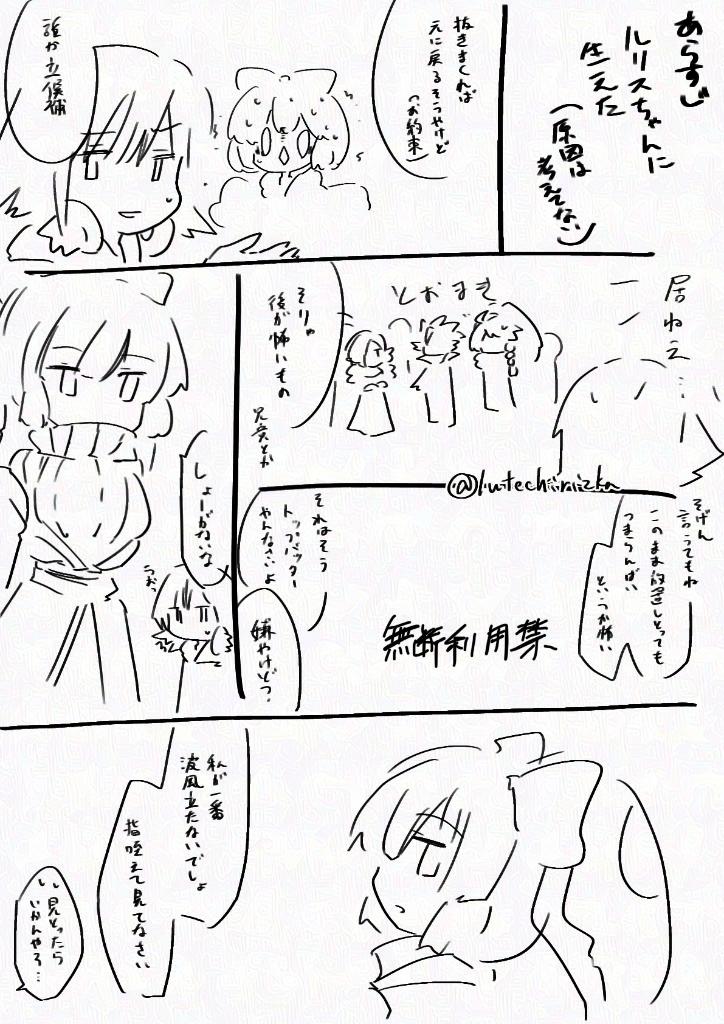 あらすじ
ルリスちゃんに
生えた
(原因は
考えてない)
抜きまくれば
元に戻るそうやけど
(お約束)
誰か立候補
居ねえ…
とおまき
そりゃ
後が怖いもの
兄妾とか
しょーがないな
うおっ
@lutechirizka
そげん
言うてもね
このまま放置しとっても
つまらんばい
というか怖い
それはそう
トップバッター
やんなさいよ
嫌やけどっ
無断利用禁
私が一番
波風立たないでしょ
指咥えて見てなさい
い、見とったら
いかんやろ…